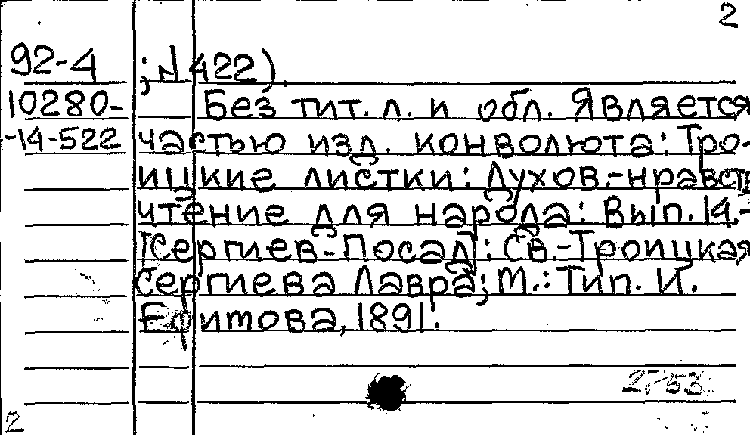 2
92-4 ; № 422).
10280- Без тит. л. и обл. Является
-14-522 частью изд. конволюта: Тро-
ицкие листки: Духов.-нравств
чтение для народа: Вып. 14.-
[Сергиев-Посад]: Св.-Троицкая
Сергиева Лавра; М.: Тип. И.
Ефимова, 1891.
2753
2